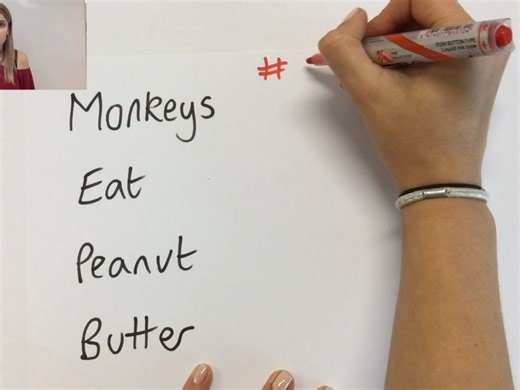 #
Monkeys
Eat
Peanut
Butter